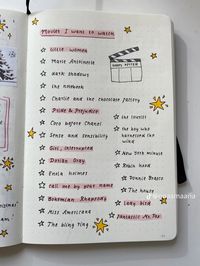 Movies I want to watch
Little women
Marie Antoinette
Dark shadows
the notebook
Charlie and the chocolate factory
Pride & Prejudice
Coco before Chanel
Sense and sensibility
Girl, Interrupted
Dorian Gray
Enola holmes
call me by your name
Bohemian Rhapsody
Miss Americana
The bling ring
the tourist
the boy who
harnessed the
wind
New York minute
Robin hood
Donnie Brasco
The house
Lady bird
Fantastic Mr. Fox